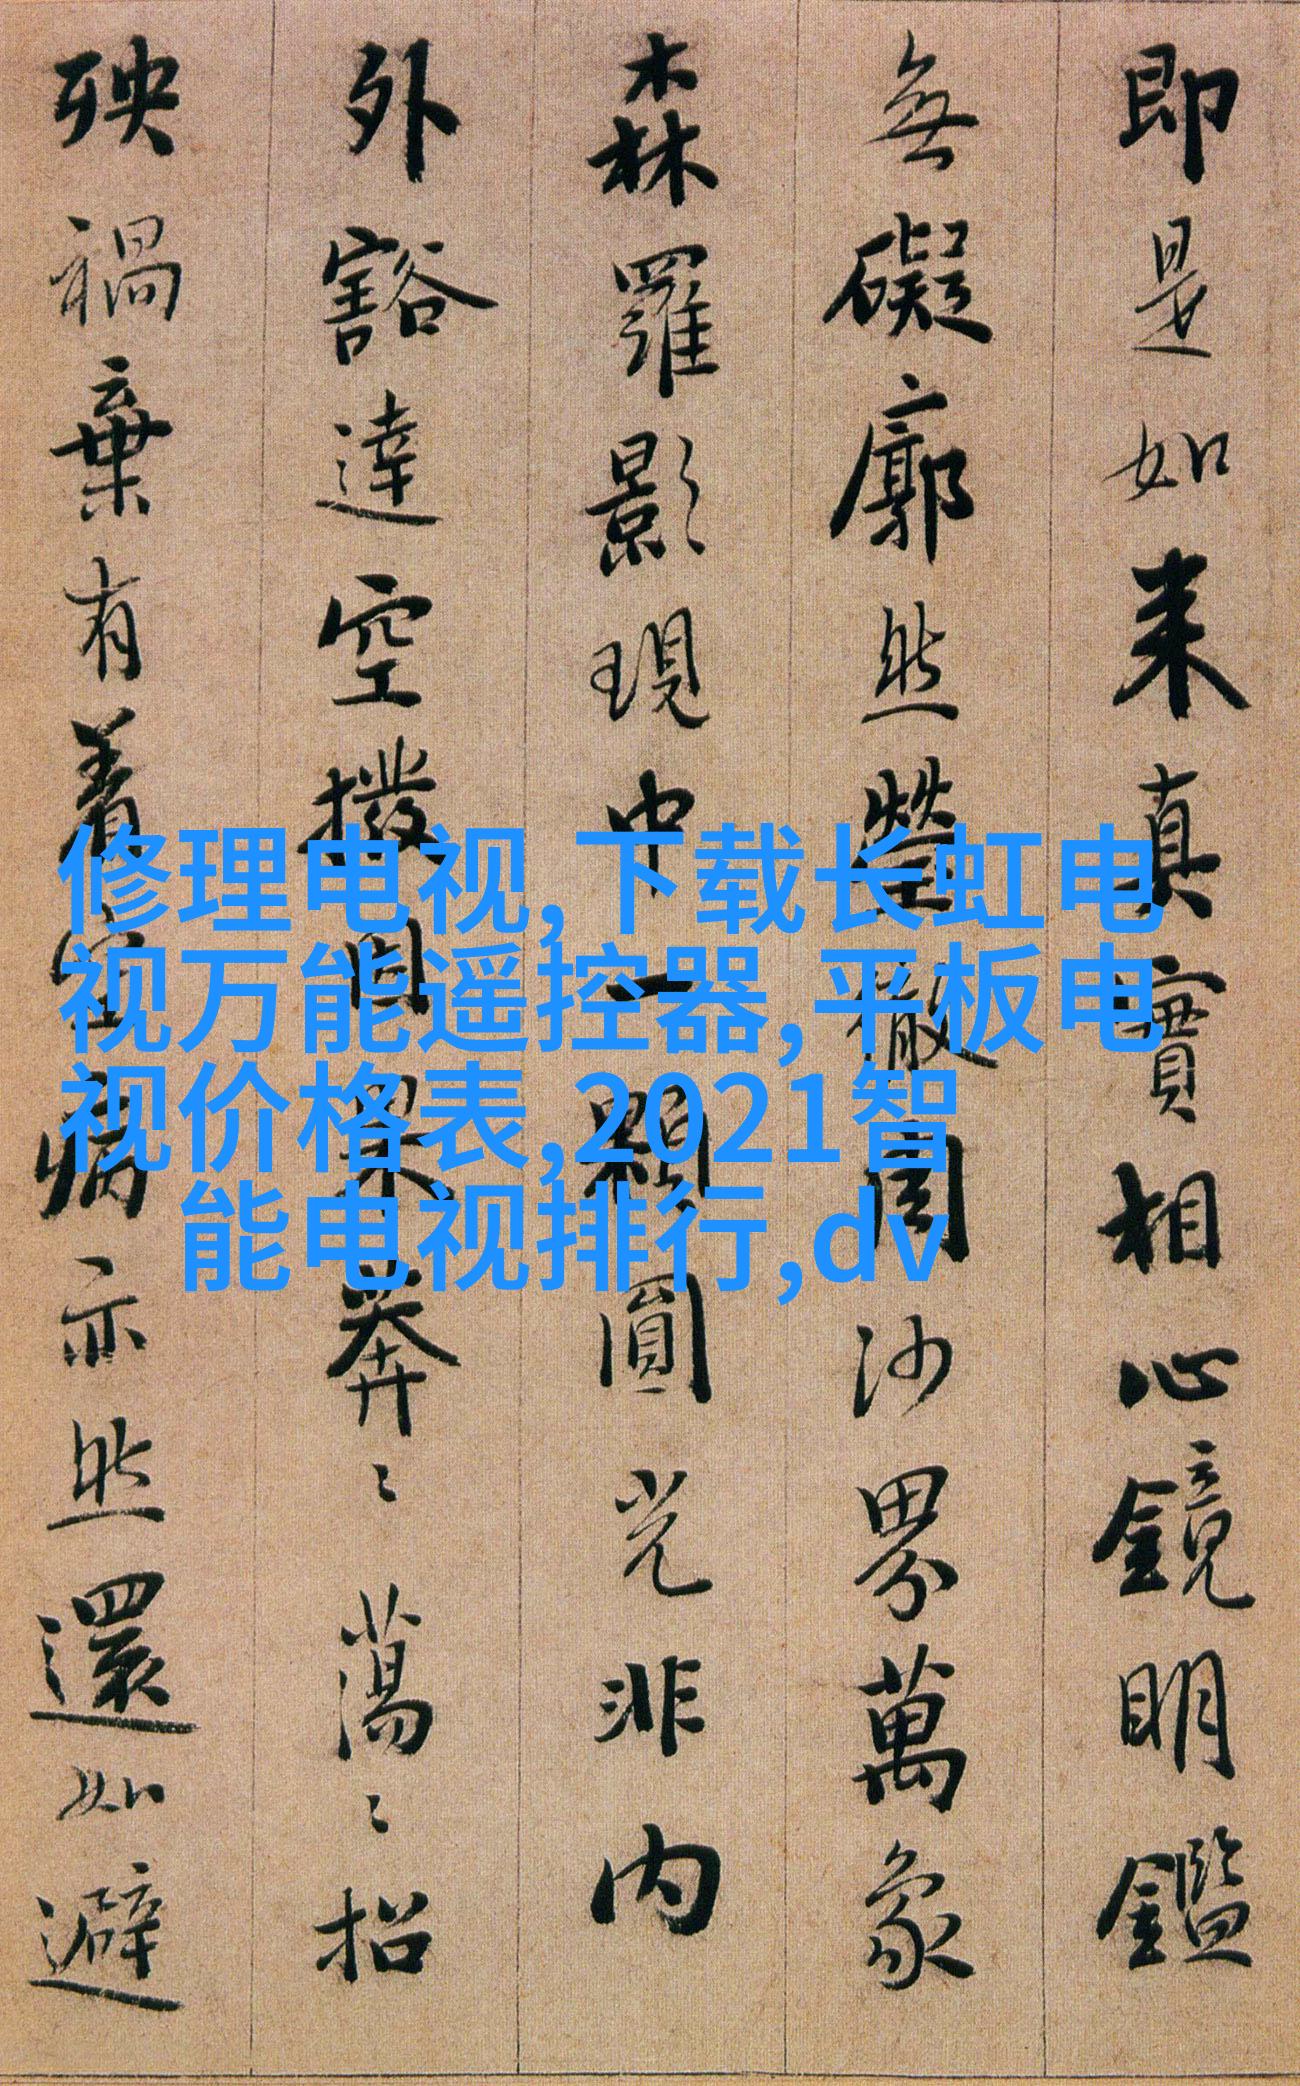 即是如来真實相心鏡明鑑
無礙廓然瑩徹周沙界萬象
森羅影現中一顆圓光非内
外豁達空撥因果莽〻蕩〻招
殃禍棄有着空病亦然還如避
修理电视,下载长虹电
视万能遥控器,平板电
视价格表,2021智
能电视排行,dv